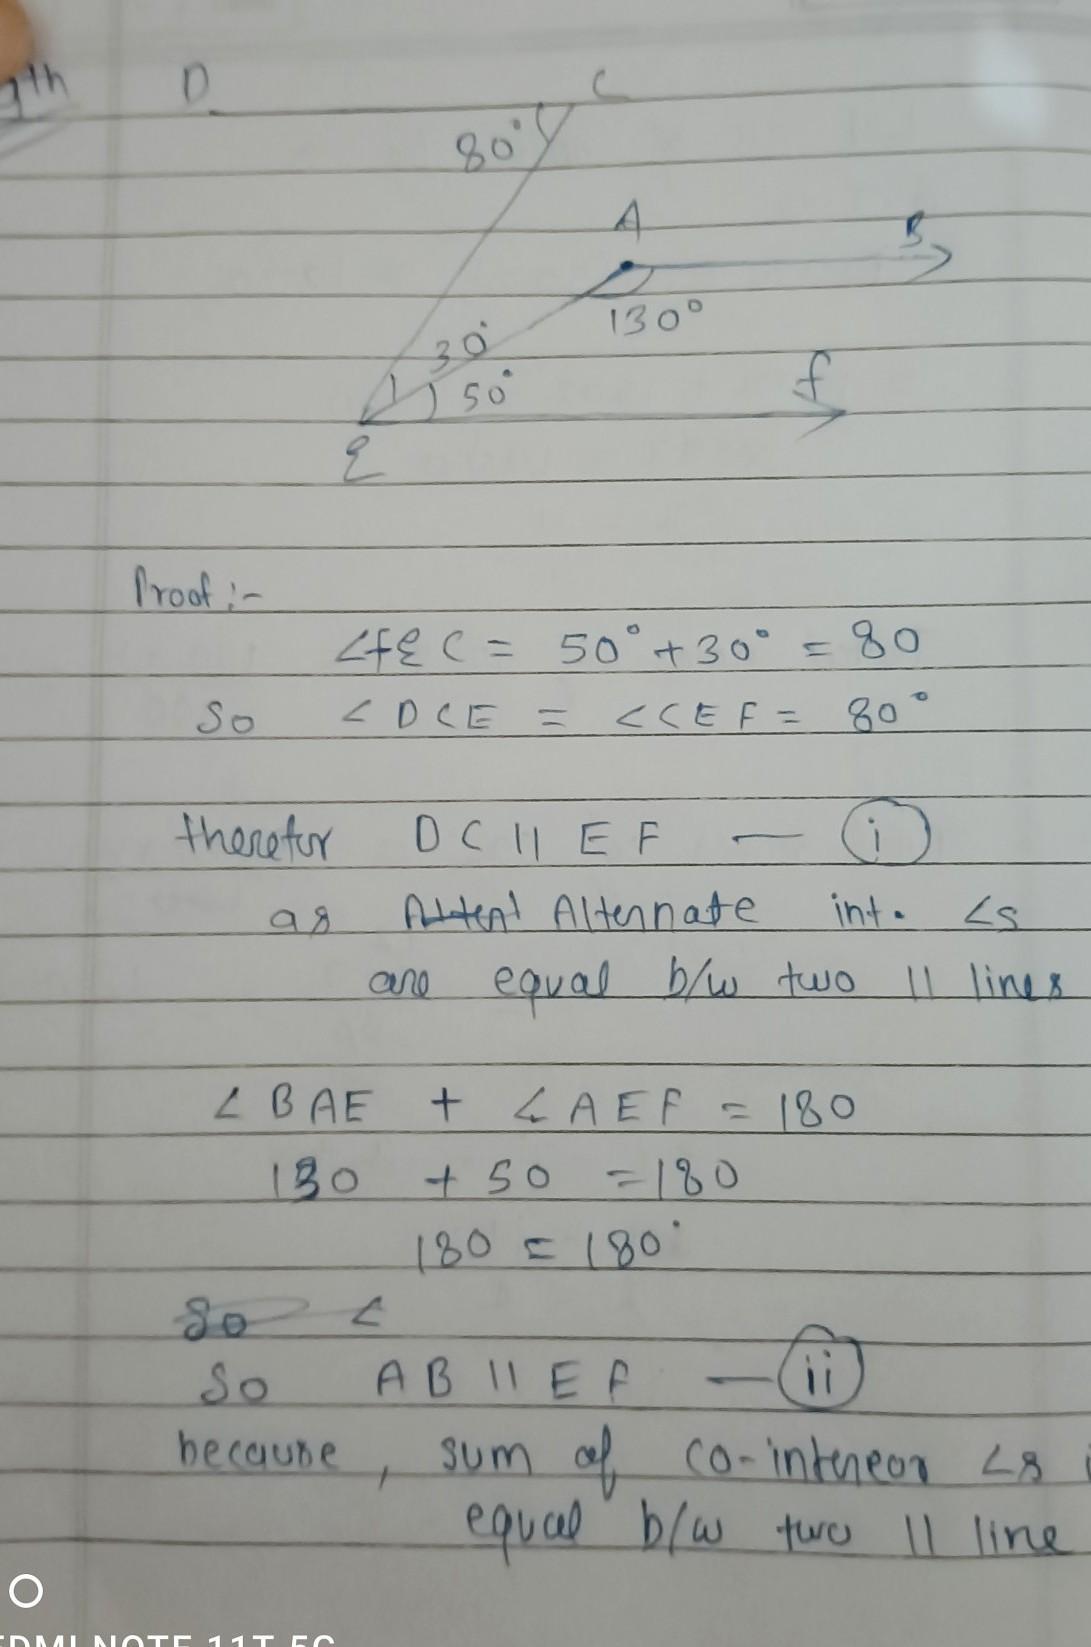 9th
D C
80°
A B
130°
30°
50° f
E
Proof :-
∠fEC = 50° + 30° = 80
So ∠DCE = ∠CEF = 80°
therefor DC || EF — (i)
as Alternate int. ∠s
are equal b/w two || lines
∠BAE + ∠AEF = 180
130 + 50 = 180
180 = 180°
So ∠
So AB || EF — (ii)
because, sum of co-intereor ∠s
equal b/w two || line
REDMI NOTE 11T 5G